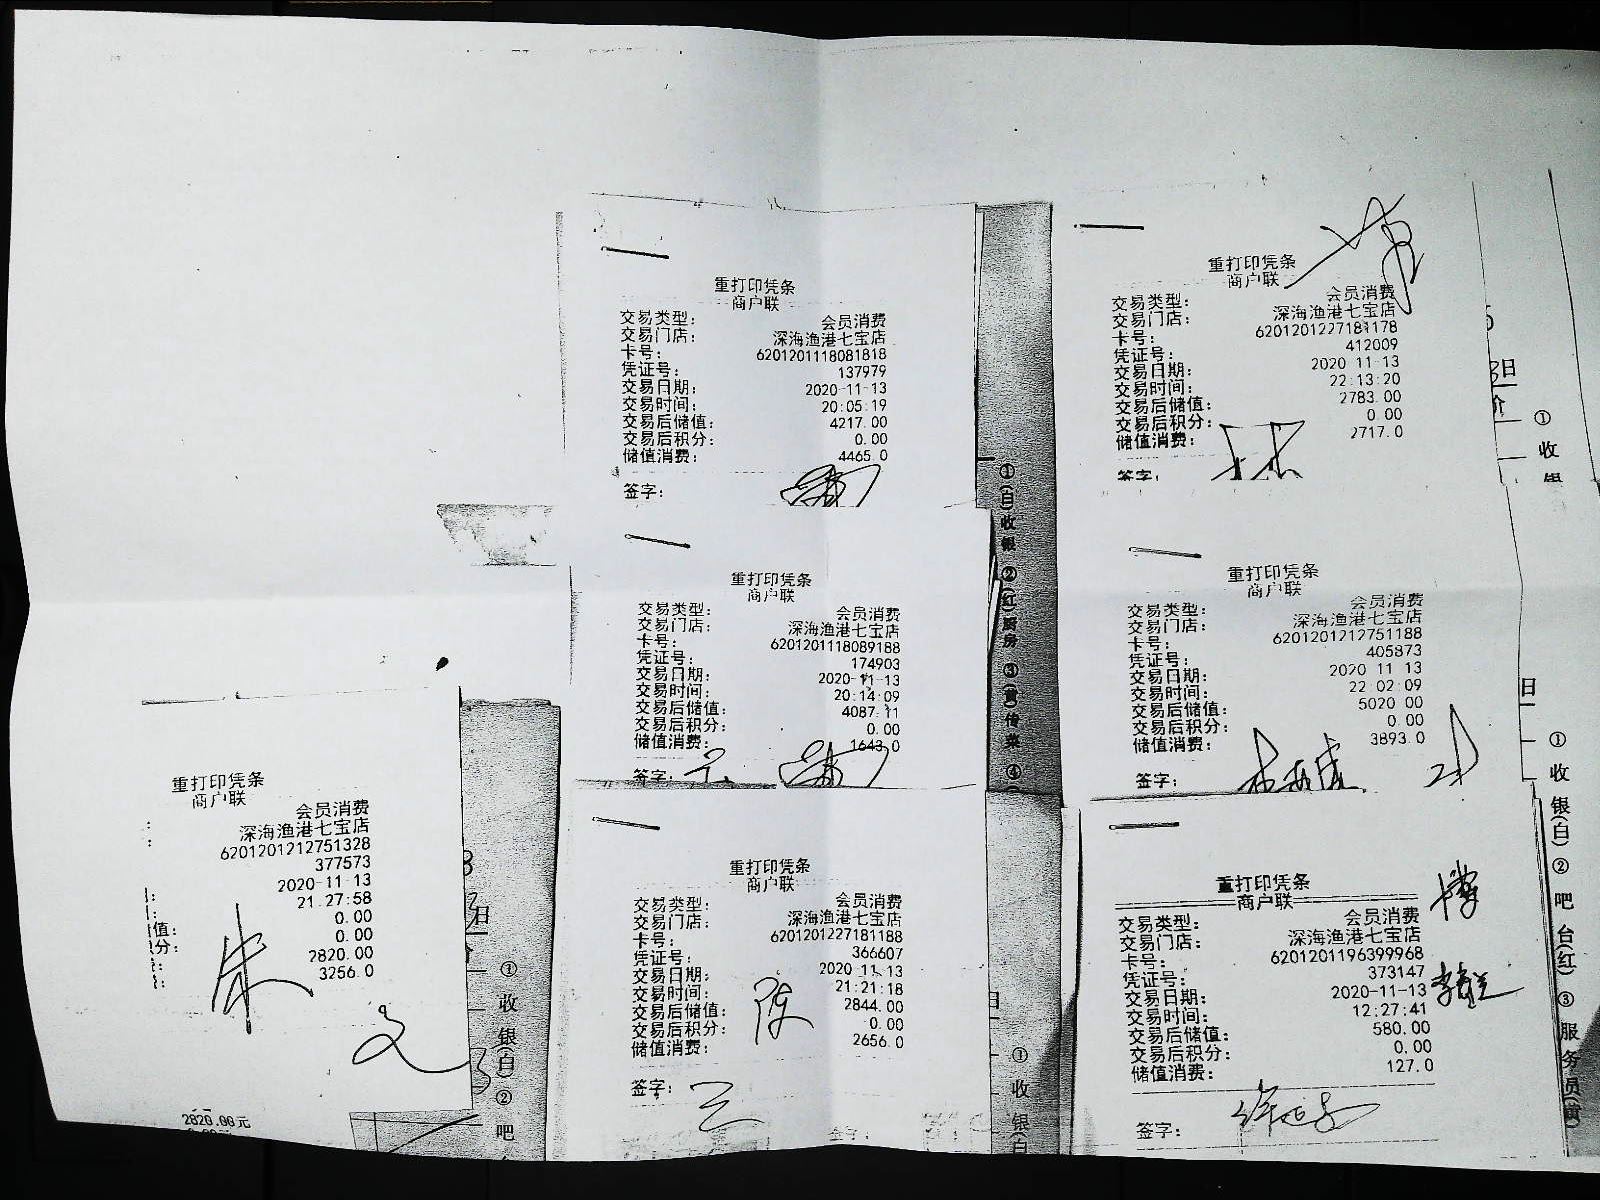 重打印凭条
商户联
交易类型： 会员消费
交易门店： 深海渔港七宝店
卡号： 6201201118081818
凭证号： 137979
交易日期： 2020-11-13
交易时间： 20:05:19
交易后储值： 4217.00
交易后积分： 0.00
储值消费： 4465.0
签字：
重打印凭条
商户联
交易类型： 会员消费
交易门店： 深海渔港七宝店
卡号： 6201201227181178
凭证号： 412009
交易日期： 2020 11-13
交易时间： 22:13:20
交易后储值： 2783.00
交易后积分： 0.00
储值消费： 2717.0
签字：
重打印凭条
商户联
交易类型： 会员消费
交易门店： 深海渔港七宝店
卡号： 6201201118089188
凭证号： 174903
交易日期： 2020-11-13
交易时间： 20:14:09
交易后储值： 4087.11
交易后积分： 0.00
储值消费： 1643.0
签字：
重打印凭条
商户联
交易类型： 会员消费
交易门店： 深海渔港七宝店
卡号： 6201201212751188
凭证号： 405873
交易日期： 2020 11 13
交易时间： 22 02:09
交易后储值： 5020 00
交易后积分： 0 00
储值消费： 3893.0
签字：
重打印凭条
商户联
会员消费
深海渔港七宝店
6201201212751328
377573
2020-11-13
21.27:58
0.00
值： 0.00
分： 2820.00
3256.0
朱
2820.00元
重打印凭条
商户联
交易类型： 会员消费
交易门店： 深海渔港七宝店
卡号： 6201201227181188
凭证号： 366607
交易日期： 2020 11-13
交易时间： 21:21:18
交易后储值： 2844.00
交易后积分： 0.00
储值消费： 2656.0
陈
签字：
重打印凭条
商户联
交易类型： 会员消费
交易门店： 深海渔港七宝店
卡号： 6201201196399968
凭证号： 373147
交易日期： 2020-11-13
交易时间： 12:27:41
交易后储值： 580.00
交易后积分： 0.00
储值消费： 127.0
签字：
①(白)收银 ②(红)厨房 ③(黄)传菜 ④
日
①收银
日
①收银(白)②吧台(红)③服务员(黄)
日
①收银(白)②吧
①收银(白